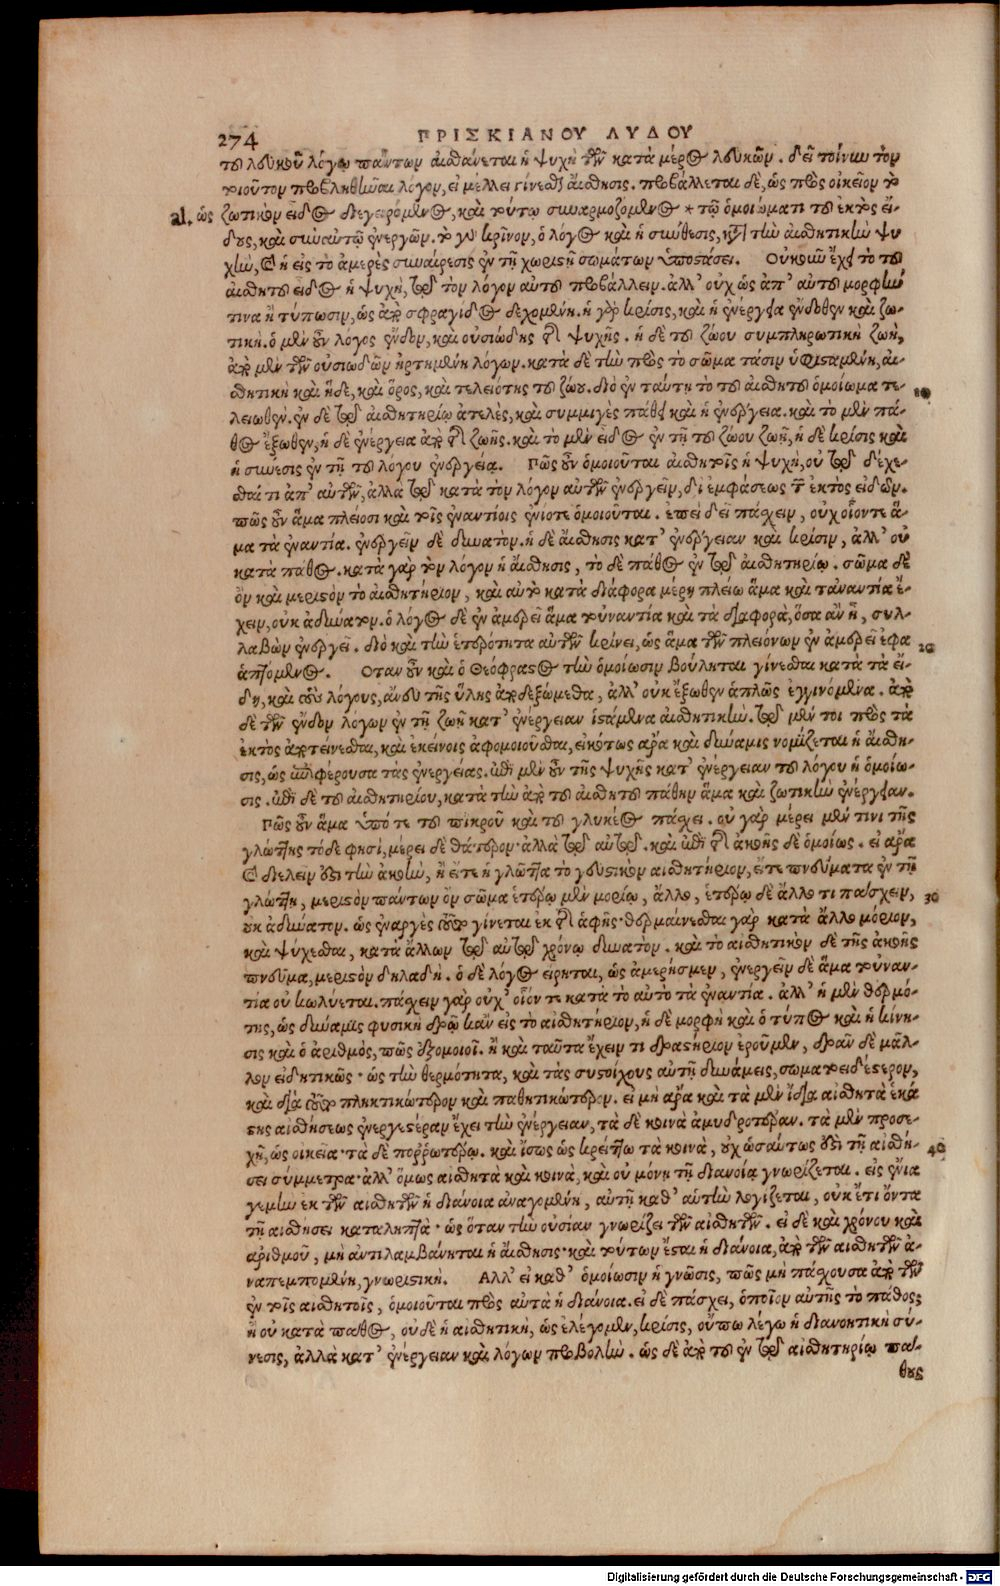 274 ΠΡΙΣΚΙΑΝΟΥ ΛΥΔΟΥ
του λευκοῦ λόγῳ πάντων αἰσθάνεται ἡ ψυχὴ τῶν κατὰ μέρος λευκῶν. δεῖ τοίνυν τὸν
τοιοῦτον προβληθῆναι λόγον, εἰ μέλλει γίνεσθαι αἴσθησις. προβάλλεται δὲ, ὡς πρὸς οἰκεῖον τὸ
al. ὡς ζωτικὸν εἶδος διεγειρόμενος, καὶ τούτῳ συναρμοζόμενος * τῷ ὁμοιώματι τοῦ ἐκτὸς εἴ-
δους, καὶ σὺν αὐτῷ ἐνεργῶν. τὸ γοῦν κρῖνον, ὁ λόγος καὶ ἡ σύνθεσις, κατὰ τὴν αἰσθητικὴν ψυ
χὴν, καὶ ἡ εἰς τὸ ἀμερὲς συναίρεσις ἐν τῇ χωριστῇ σωμάτων ὑποστάσει. Οὐκοῦν ἔχει τὸ τοῦ
αἰσθητοῦ εἶδος ἡ ψυχὴ, τῷ τὸν λόγον αὐτοῦ προβάλλειν. ἀλλ' οὐχ ὡς ἀπ' αὐτοῦ μορφήν
τινα ἢ τύπωσιν, ὡς ἀπὸ σφραγῖδος δεχομένη. ἡ γὰρ κρίσις, καὶ ἡ ἐνέργεια ἔνδοθεν καὶ ζω-
τική. ὁ μὲν οὖν λόγος ἔνδον, καὶ οὐσιώδης τῆς ψυχῆς. ἡ δὲ τοῦ ζώου συμπληρωτικὴ ζωὴ,
ἀπὸ μὲν τῶν οὐσιωδῶν ἠρτημένη λόγων. κατὰ δὲ τὴν πρὸς τὸ σῶμα τάσιν ὑφισταμένη, αἰ-
σθητικὴ καὶ ἥδε, καὶ ὅρος, καὶ τελειότης τοῦ ζώου. διὸ ἐν ταύτῃ τὸ τοῦ αἰσθητοῦ ὁμοίωμα τε- 10
λειωθὲν. ἐν δὲ τῷ αἰσθητηρίῳ ἀτελὲς, καὶ συμμιγὲς πάθει καὶ ἡ ἐνέργεια. καὶ τὸ μὲν πά-
θος ἔξωθεν, ἡ δὲ ἐνέργεια ἀπὸ τῆς ζωῆς. καὶ τὸ μὲν εἶδος ἐν τῇ τοῦ ζώου ζωῇ, ἡ δὲ κρίσις καὶ
ἡ σύνεσις ἐν τῇ τοῦ λόγου ἐνεργείᾳ. Πῶς οὖν ὁμοιοῦται αἰσθητοῖς ἡ ψυχὴ, οὐ τῷ δέχε-
σθαί τι ἀπ' αὐτῶν, ἀλλὰ τῷ κατὰ τὸν λόγον αὐτῶν ἐνεργεῖν, δι' ἐμφάσεως τῶν ἐκτὸς εἰδῶν.
πῶς οὖν ἅμα πλείοσι καὶ τοῖς ἐναντίοις ἐνίοτε ὁμοιοῦται. ἐπεὶ δεῖ πάσχειν, οὐχ οἷόντε ἅ-
μα τὰ ἐναντία. ἐνεργεῖν δὲ δυνατόν. ἡ δὲ αἴσθησις κατ' ἐνέργειαν καὶ κρίσιν, ἀλλ' οὐ
κατὰ πάθος. κατὰ γὰρ τὸν λόγον ἡ αἴσθησις, τὸ δὲ πάθος ἐν τῷ αἰσθητηρίῳ. σῶμα δὲ
ὂν καὶ μεριστὸν τὸ αἰσθητήριον, καὶ αὐτὸ κατὰ διάφορα μέρη πλείω ἅμα καὶ τἀναντία ἔ-
χειν, οὐκ ἀδύνατον. ὁ λόγος δὲ ἐν ἀμερεῖ ἅμα τὀναντία καὶ τὰ διάφορα, ὅσα ἂν ᾖ, συλ-
λαβὼν ἐνεργεῖ. διὸ καὶ τὴν ἑτερότητα αὐτῶν κρίνει, ὡς ἅμα τῶν πλειόνων ἐν ἀμερεῖ ἐφα 20
ἁπτομένος. Ὅταν οὖν καὶ ὁ Θεόφραστος τὴν ὁμοίωσιν βούληται γίνεσθαι κατὰ τὰ εἴ-
δη, καὶ τοὺς λόγους, ἄνευ τῆς ὕλης ἀποδεξώμεθα, ἀλλ' οὐκ ἔξωθεν ἁπλῶς ἐγγινόμενα. ἀπὸ
δὲ τῶν ἔνδον λόγων ἐν τῇ ζωῇ κατ' ἐνέργειαν ἱστάμενα αἰσθητικήν. τῷ μέν τοι πρὸς τὰ
ἐκτὸς ἀποτείνεσθαι, καὶ ἐκείνοις ἀφομοιοῦσθαι, εἰκότως ἄρα καὶ δύναμις νομίζεται ἡ αἴσθη-
σις, ὡς ἐπιφέρουσα τὰς ἐνεργείας. ἐπὶ μὲν οὖν τῆς ψυχῆς κατ' ἐνέργειαν τοῦ λόγου ἡ ὁμοίω-
σις. ἐπὶ δὲ τοῦ αἰσθητηρίου, κατὰ τὴν ἀπὸ τοῦ αἰσθητοῦ πάθην ἅμα καὶ ζωτικὴν ἐνέργειαν.
Πῶς οὖν ἅμα ὑπό τε τοῦ πικροῦ καὶ τοῦ γλυκέος πάσχει. οὐ γὰρ μέρει μέν τινι τῆς
γλώττης τόδε φησὶ, μέρει δὲ θάτερον· ἀλλὰ τῷ αὐτῷ. καὶ ἐπὶ τῆς ἀκοῆς δὲ ὁμοίως. εἰ ἄρα
καὶ διελεῖν οὐσι τὴν ἀκοὴν, ἢ εἴτε ἡ γλῶττα τὸ γευστικὸν αἰσθητήριον, εἴτε πνεύματα ἐν τῇ
γλώττῃ, μεριστὸν πάντων ὂν σῶμα ἑτέρῳ μὲν μορίῳ, ἄλλο, ἑτέρῳ δὲ ἄλλο τι πάσχειν, 30
οὐκ ἀδύνατον. ὡς ἐναργὲς τοῦτο γίνεται ἐκ τῆς ἁφῆς· θερμαίνεσθαι γὰρ κατὰ ἄλλο μόριον,
καὶ ψύχεσθαι, κατὰ ἄλλων τῷ αὐτῷ χρόνῳ δυνατόν. καὶ τὸ αἰσθητικὸν δὲ τῆς ἀκοῆς
πνεῦμα, μεριστὸν δηλαδή. ὁ δὲ λόγος εἴρηται, ὡς ἀμερὴς μὲν, ἐνεργεῖν δὲ ἅμα τὀναν-
τία οὐ κωλύεται. πάσχειν γὰρ οὐχ' οἷόν τε κατὰ τὸ αὐτὸ τὰ ἐναντία. ἀλλ' ἡ μὲν θερμό-
της, ὡς δύναμις φυσικὴ δρῷ κἂν εἰς τὸ αἰσθητήριον, ἡ δὲ μορφὴ καὶ ὁ τύπος καὶ ἡ κίνη-
σις καὶ ὁ ἀριθμὸς, πῶς ἐξομοιοῖ. ἢ καὶ ταῦτα ἔχειν τι δραστήριον ἐροῦμεν, δρᾶν δὲ μᾶλ-
λον εἰδητικῶς· ὡς τὴν θερμότητα, καὶ τὰς συστοίχους αὐτῇ δυνάμεις, σωματοειδέστερον,
καὶ διὰ τοῦτο πληκτικώτερον καὶ παθητικώτερον. εἰ μὴ ἄρα καὶ τὰ μὲν ἴδια αἰσθητὰ ἑκά
στης αἰσθήσεως ἐνεργεστέραν ἔχει τὴν ἐνέργειαν, τὰ δὲ κοινὰ ἀμυδροτέραν. τὰ μὲν προσε-
χῆ, ὡς οἰκεῖα· τὰ δὲ πορρωτέρω. καὶ ἴσως ὡς κρείττω τὰ κοινὰ, οὐχ ὡσαύτως οὐσι τῇ αἰσθή- 40
σει σύμμετρα· ἀλλ' ὅμως αἰσθητὰ καὶ κοινὰ, καὶ οὐ μόνῃ τῇ διανοίᾳ γνωρίζεται. εἰς ἔννοια
γεμὼ ἐκ τῶν αἰσθητῶν ἡ διάνοια ἀναγομένη, αὐτὴ καθ' αὑτὴν λογίζεται, οὐκ ἔτι ὄντα
τῇ αἰσθήσει καταληπτά· ὡς ὅταν τὴν οὐσίαν γνωρίζει τῶν αἰσθητῶν. εἰ δὲ καὶ χρόνου καὶ
ἀριθμοῦ, μὴ ἀντιλαμβάνηται ἡ αἴσθησις· καὶ τούτων ἔσται ἡ διάνοια, ἀπὸ τῶν αἰσθητῶν ἀ-
ναπεμπομένη, γνωριστική. Ἀλλ' εἰ καθ' ὁμοίωσιν ἡ γνῶσις, πῶς μὴ πάσχουσα ἀπὸ τῶν
ἐν τοῖς αἰσθητοῖς, ὁμοιοῦται πρὸς αὐτὰ ἡ διάνοια. εἰ δὲ πάσχει, ὁποῖον αὐτῆς τὸ πάθος;
ἢ οὐ κατὰ πάθος, οὐδὲ ἡ αἰσθητικὴ, ὡς ἐλέγομεν, κρίσις, οὔπω λέγω ἡ διανοητικὴ σύ-
νεσις, ἀλλὰ κατ' ἐνέργειαν καὶ λόγων προβολήν. ὡς δὲ ἀπὸ τοῦ ἐν τῷ αἰσθητηρίῳ πά-
θους
Digitalisierung gefördert durch die Deutsche Forschungsgemeinschaft - DFG